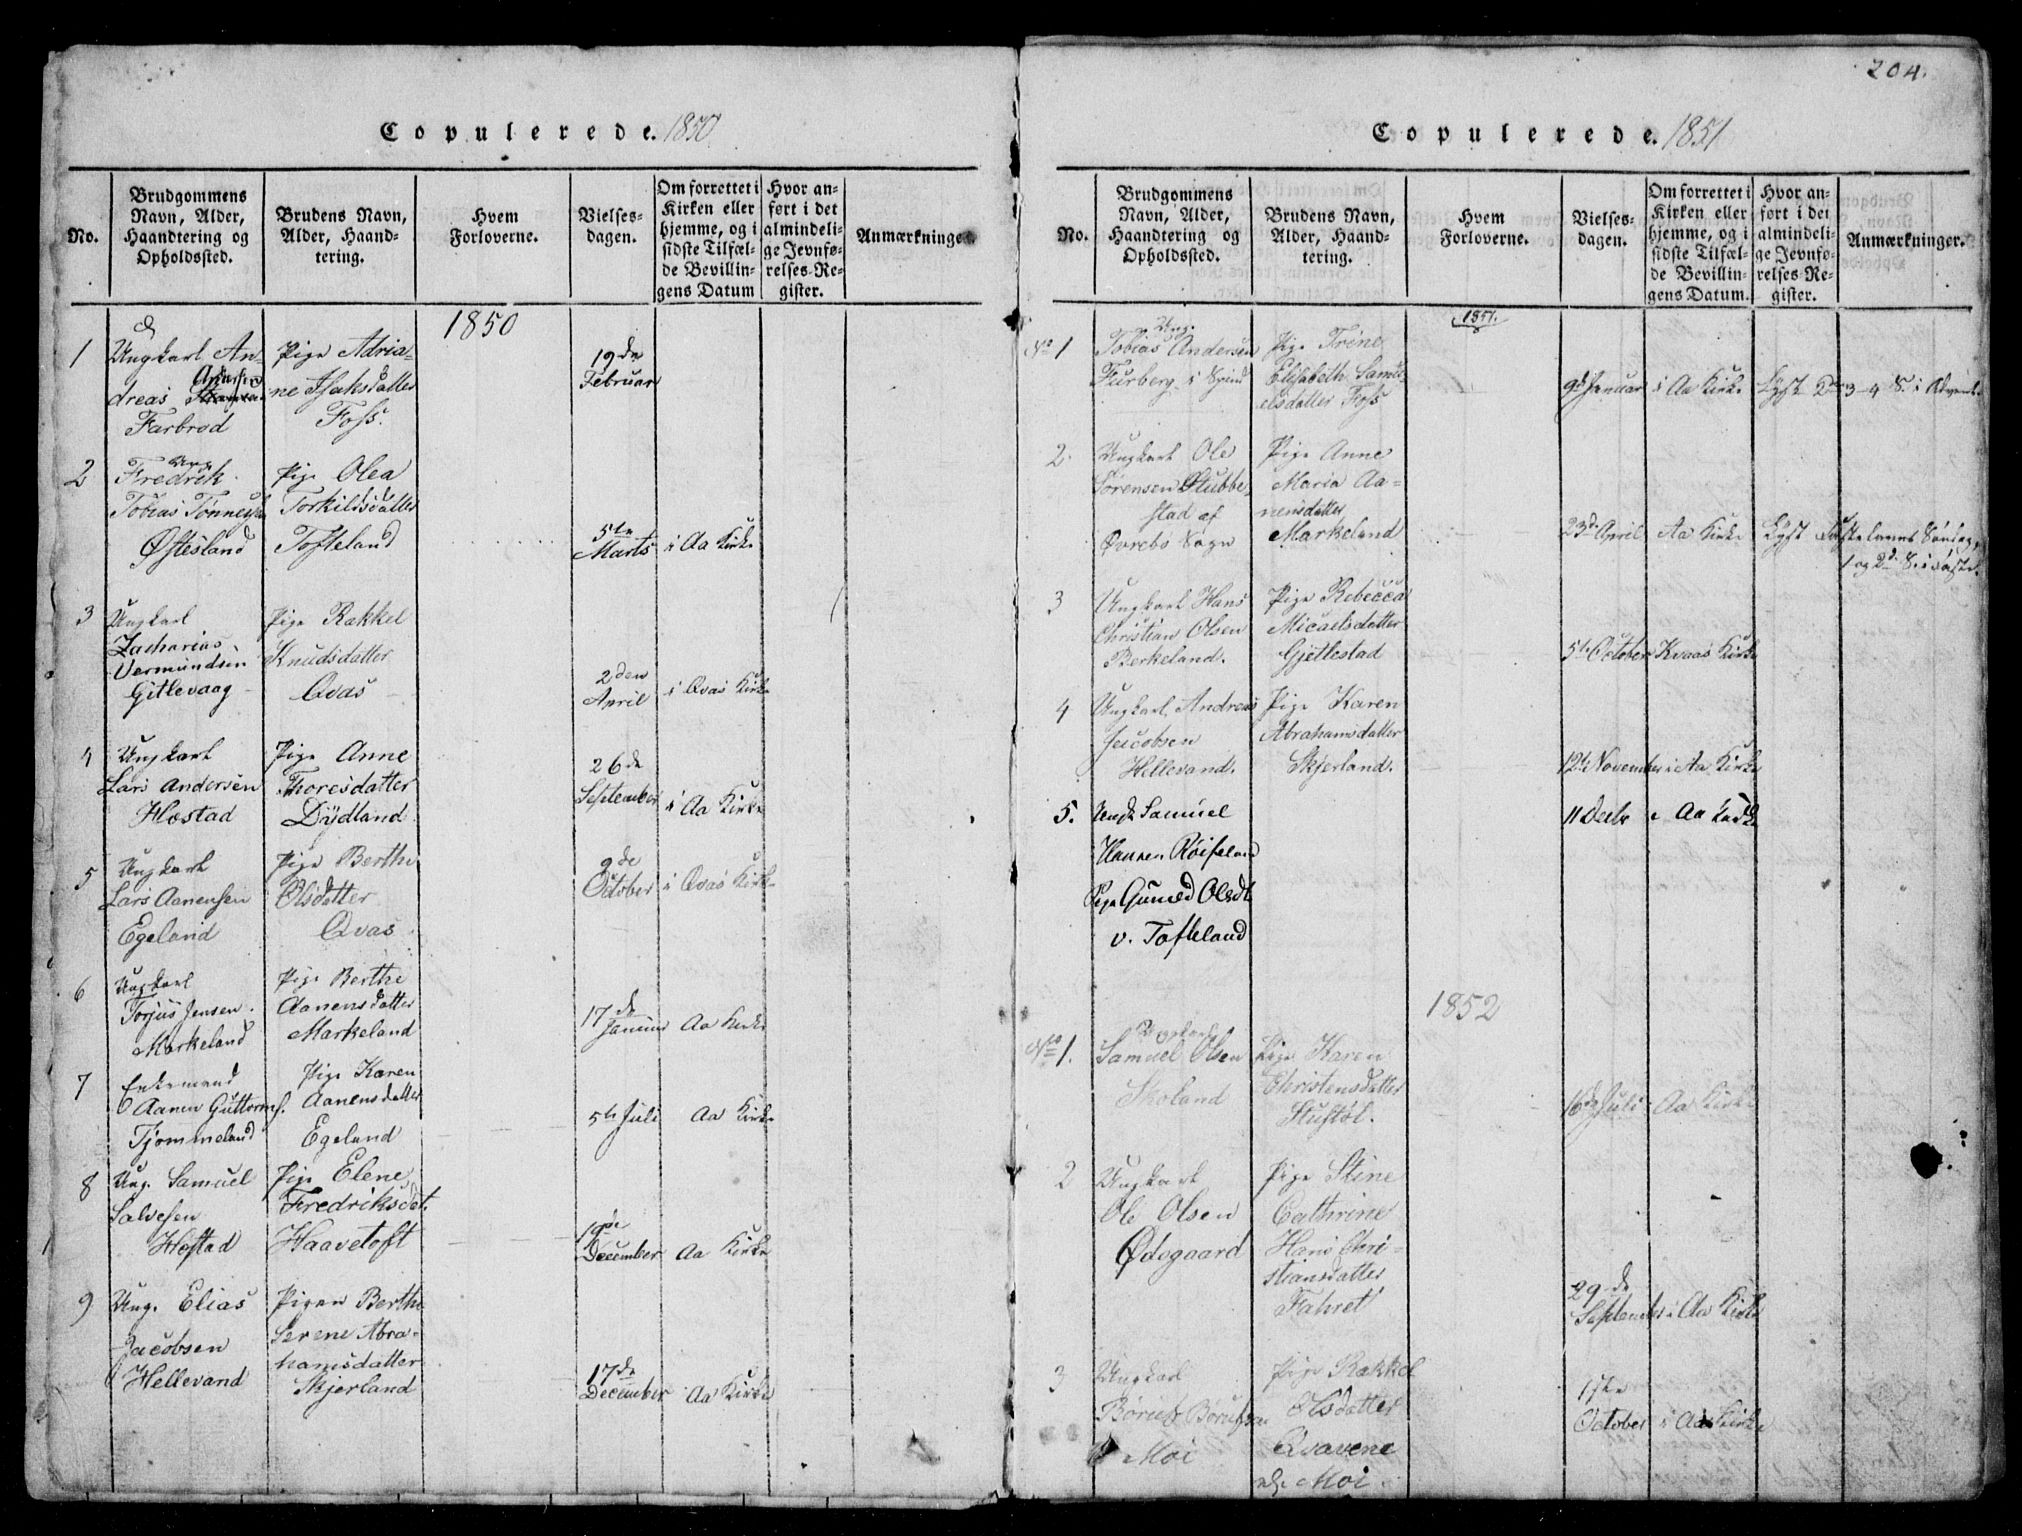 Copulerede. 1850
No.
Brudgommens
Navn, Alder,
Haandtering og
Opholdssted.
Brudens Navn,
Alder, Haand-
tering.
Hvem
Forloverne.
Vielses-
dagen.
Om forrettet i
Kirken eller
hjemme, og i
sidste Tilfæl-
de Bevillin-
gens Datum
Hvor an-
ført i det
almindeli-
ge Jevnfø-
relses-Re-
gister.
Anmærkninge
1850
1
Ungkarl An-
dreas
Farbrod
Pige Adria-
ne Isaksdatter
Foss.
19de
Februar
2
Ung.
Fredrik
Tobias Tønnesen
Øftesland
Pige Olea
Torkildsdatter
Tofteland
5te
Marts
i Aa Kirke
3
Ungkarl
Zacharias
Vermundsen
Gitlevaag
Pige Rakkel
Knudsdatter
Qvas
2den
April
i Qvas Kirke
4
Ungkarl
Lars Andersen
Høstad
Pige Anne
Thoresdatter
Dydland
26de
September
i Aa Kirke
5
Ungkarl
Lars Aanensen
Egeland
Pige Berthe
Olsdatter
Qvas
9de
October
i Qvas Kirke
6
Ungkarl
Torjus Jensen
Markeland
Pige Berthe
Aanensdatter
Markeland
17de
Aa Kirke
7
Enkemand
Aanen Guttorms.
Tjommeland
Pige Karen
Aanensdatter
Egeland
5te Juli
Aa Kirke
8
Ung. Samuel
Salvesen
Høstad
Pige Elene
Fredriksdat.
Haavetoft
19de
December
Aa Kirke
9
Ung. Elias
Jacobsen
Hellevand
Pigen Berthe
Serene Abra-
hamsdatter
Skjerland
17de
December
Aa Kirke
204.
Copulerede. 1851
No.
Brudgommens
Navn, Alder,
Haandtering og
Opholdssted.
Brudens Navn,
Alder, Haand-
tering.
Hvem
Forloverne.
Vielses-
dagen.
Om forrettet i
Kirken eller
hjemme, og i
sidste Tilfæl-
de Bevillin-
gens Datum.
Hvor an-
ført i det
almindeli-
ge Jevnfø-
relses-Re-
gister.
Anmærkninger.
1851.
No 1
Ung.
Tobias Andersen
Furberg i Spind
Pige Trine
Elisabeth Samu-
elsdatter Foss
9de Januar
i Aa Kirke
Lyst 2-3-4 S. i Advent.
2.
Ungkarl Ole
Sørensen Stubbe-
stad af
Øvrebø Sogn
Pige Anne
Maria Aa-
nensdatter
Markeland
23de April
Aa Kirke
Lyst Fastelavns Søndag,
1 og 2de S. i Faste.
3
Ungkarl Hans
Christian Olsen
Berkeland.
Pige Rebecca
Micaelsdatter
Gjetlestad
5te October
Kvaas Kirke
4
Ungkarl Andreas
Jacobsen
Hellevand.
Pige Karen
Abrahamsdatter
Skjerland.
12te November
i Aa Kirke
5.
Ungk Samuel
Hansen Røiseland
Pige Guned Olsdt
v. Tofteland
11 Decbr
i Aa Kirke
1852
No 1.
Ungkarl
Samuel Olsen
Skoland
Pige Karen
Christensdatter
Stustøl.
16de Juli
Aa Kirke
2
Ungkarl
Ole Olsen
Ødegaard
Pige Stine
Cathrine
Hans Chri-
stiansdatter
Fahret
29de
September
i Aa Kirke
3
Ungkarl
Børue Børuesen
Moi
Pige Rakkel
Olsdatter
Qvavene
Moi
1ste
October
i Aa Kirke